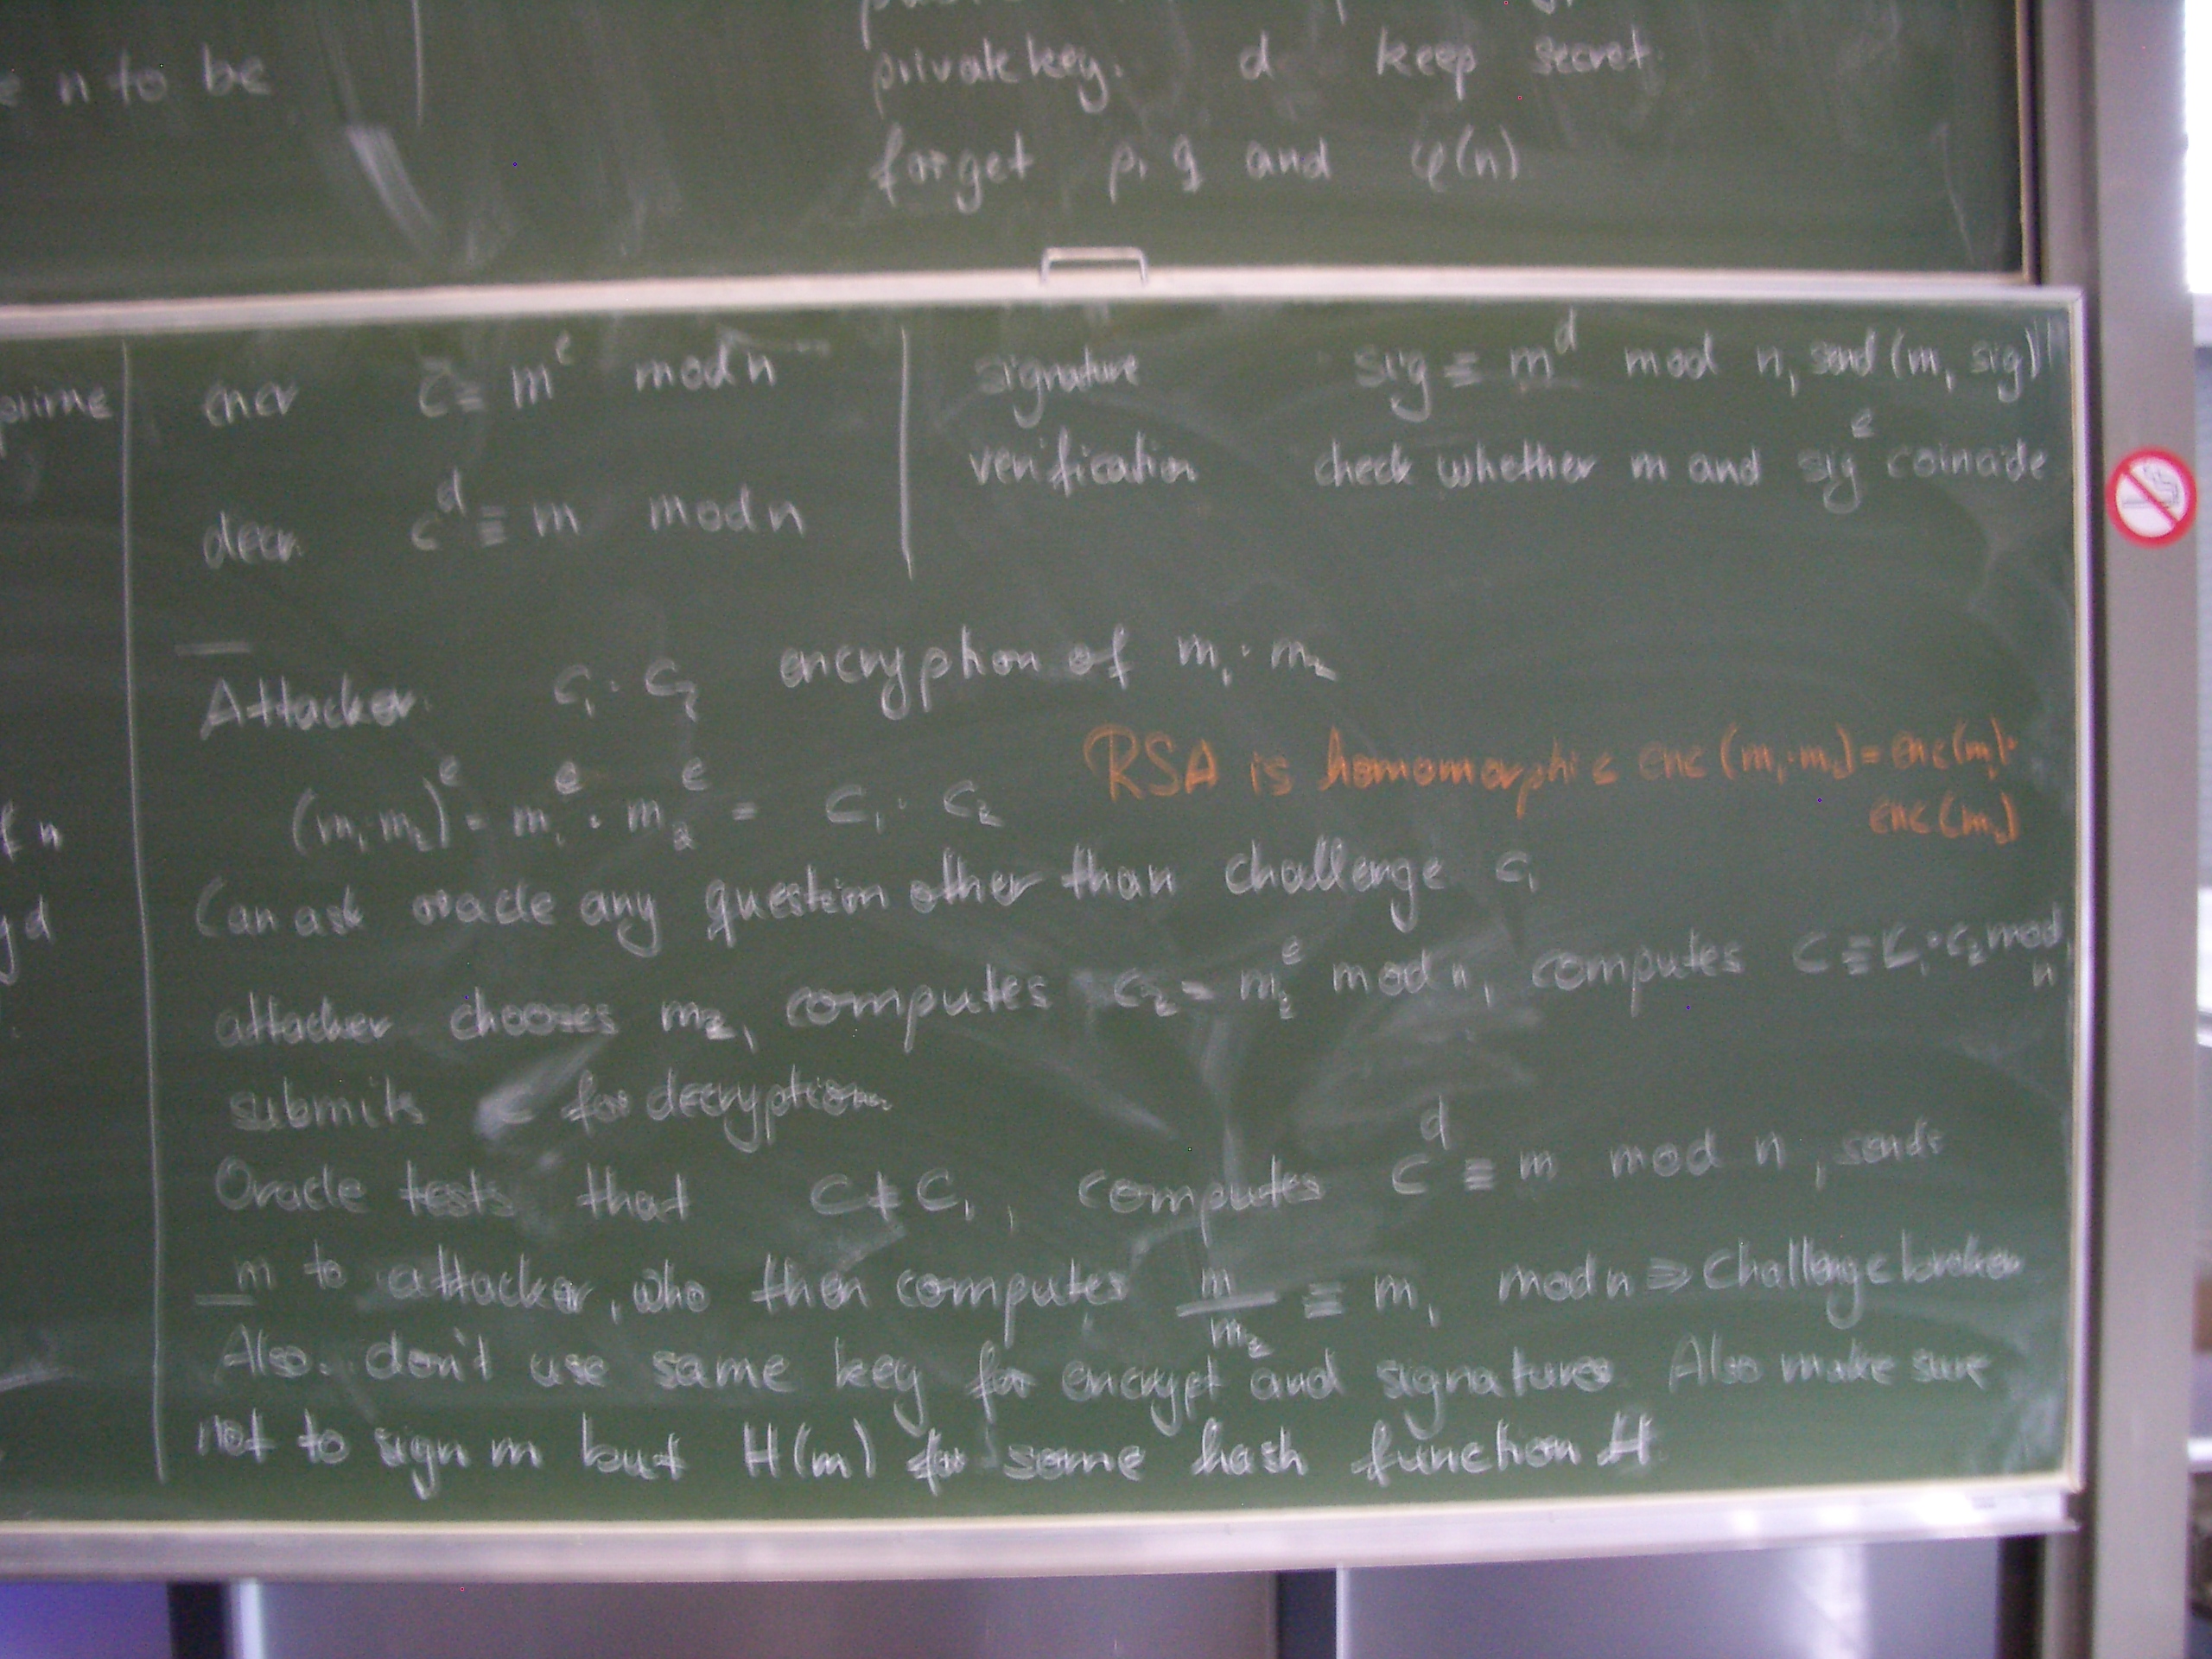 e n to be
private key. d keep secret.
forget p, q and φ(n)
prime
encr c ≡ m^e mod n
decr. c^d ≡ m mod n
signature sig ≡ m^d mod n, send (m, sig)
verification check whether m and sig^e coincide
Attacker. c₁ · c₂ encryption of m₁ · m₂
(m₁·m₂)^e = m₁^e · m₂^e = c₁ · c₂
RSA is homomorphic enc (m₁·m₂) = enc(m₁)·
enc(m₂)
f n
Can ask oracle any question other than challenge c₁
y d
attacker chooses m₂, computes c₂ = m₂^e mod n, computes c ≡ c₁·c₂ mod
n
submits c for decryption
Oracle tests that c ≠ c₁, computes c^d ≡ m mod n, sends
m to attacker, who then computes m/m₂ ≡ m₁ mod n ⇒ Challenge broken
Also. don't use same key for encrypt and signatures Also make sure
not to sign m but H(m) for some hash function H